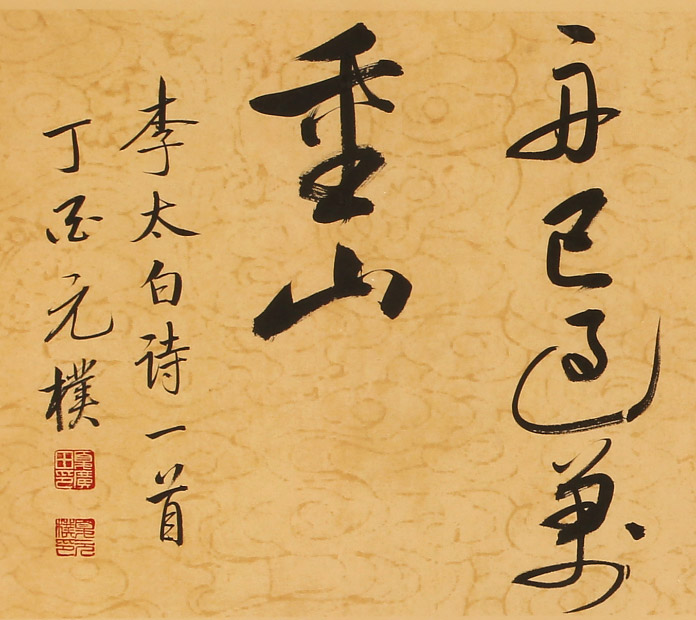 舟已過萬
重山
李太白诗一首
丁酉元樸